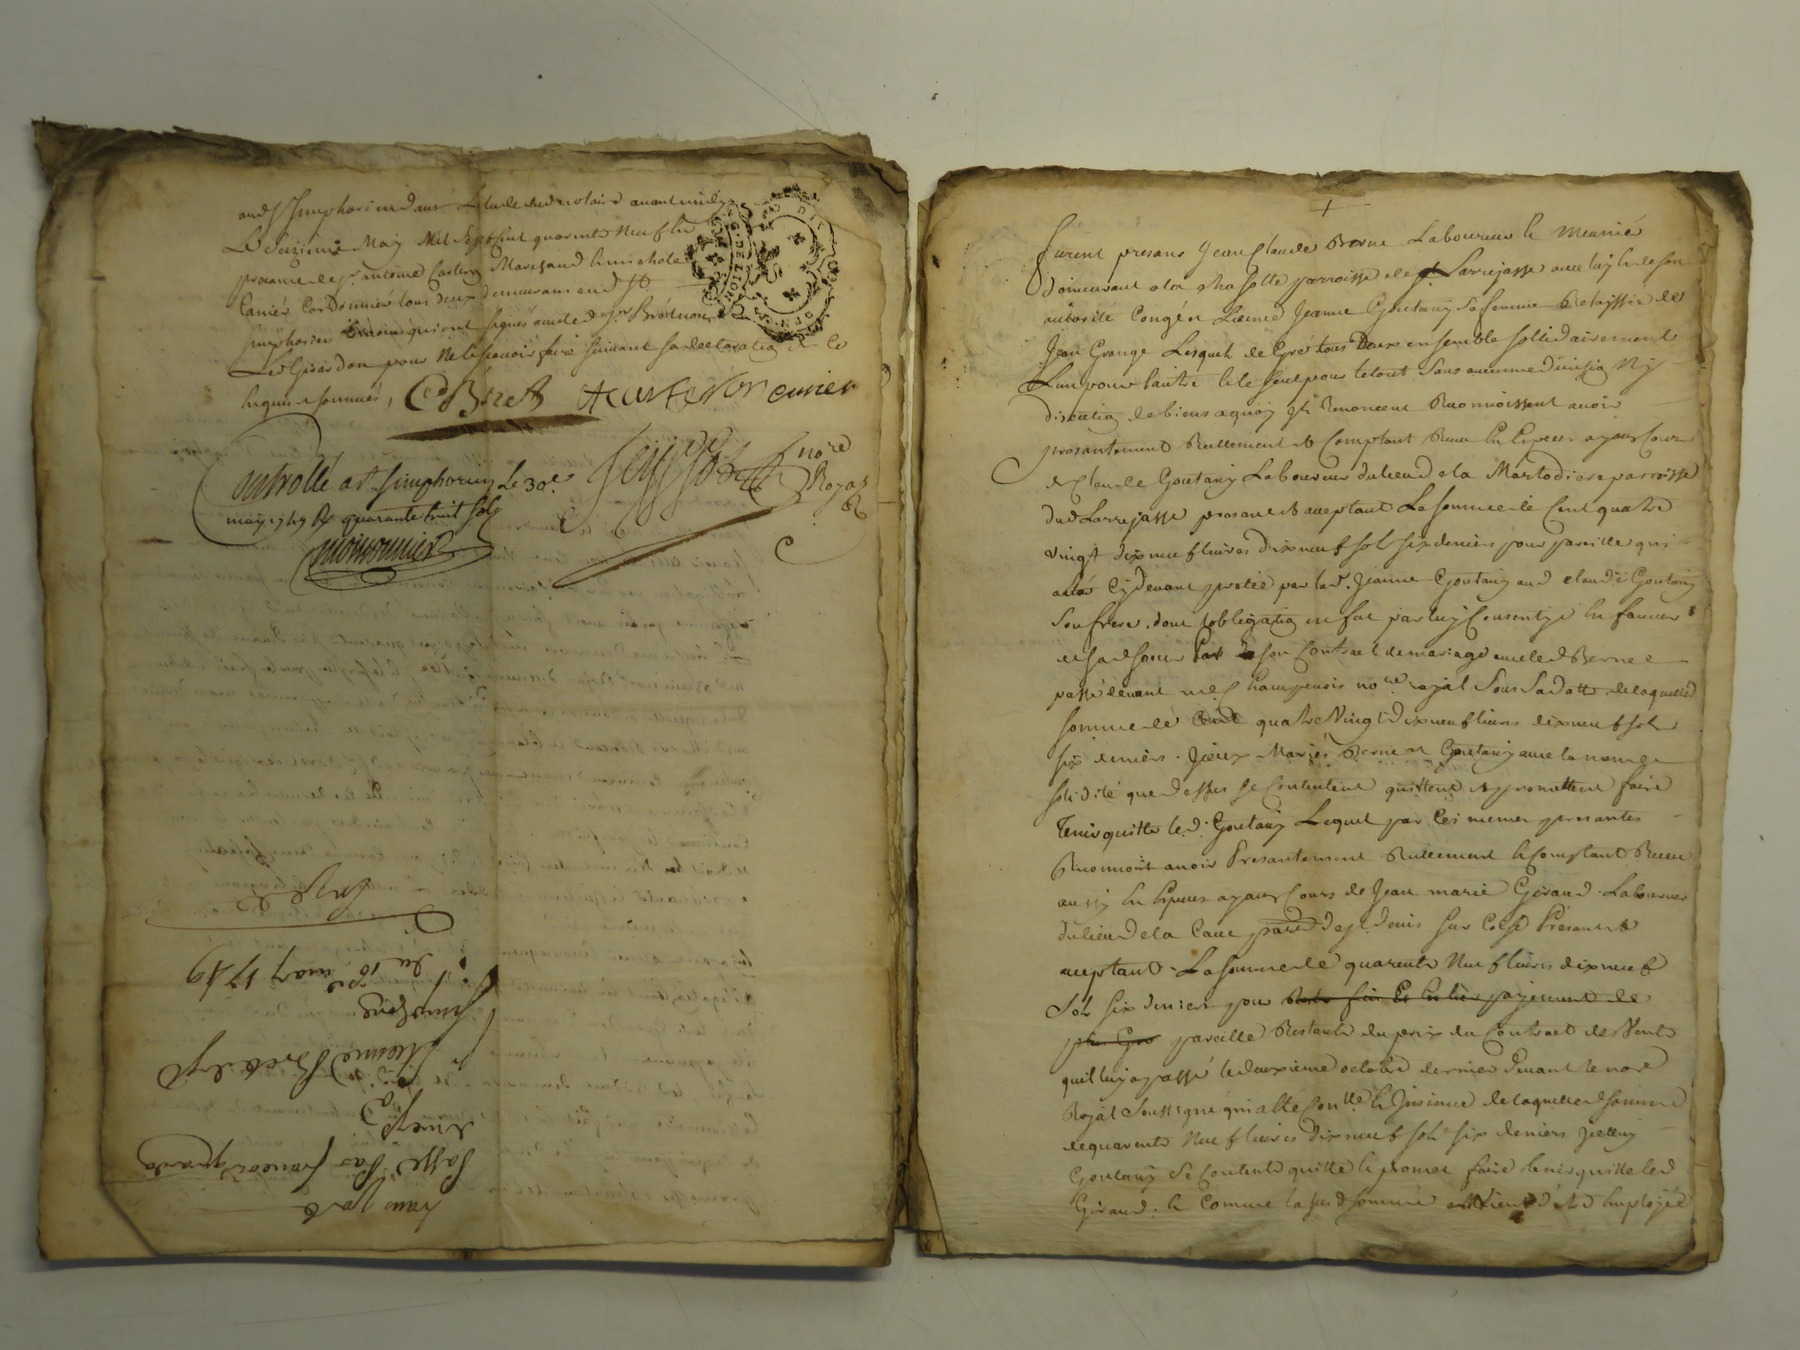 aud St Simphorien dans L'etude dud notaire avant midy
Le seizieme May Mil Sept Cent quarante Neuf en
presance de Sr antoine Carteron Marchand & michele
Cunier Cordonnier tous deux demeurans aud St
Simphorien temoins qui ont signés avec led Sr Brét non
Led Girardon pour Ne le sçavoir faire suivant sa declaration de ce
Enquis & sommés,
CBret ACARTERON cunier
Controllé a St Simphorien Le 30e
may 1749 R quarante huit sols
moissonnier
nore Royal
Furent presans Jean Claude Berne Laboureur & Meunié
Demeurant a la Chasotte parroisse de Larrejasse avec luy & de son
autorité Congér Licence Jeanne Goutany sa femme Relaissée de
Jean Grange Lesquels de Gré tous Deux ensemble sollidairement
L'un pour l'autre & le seul pour le tout Sans aucune Division Ny
discution de biens a quoy ils Renoncent Reconnoissent avoir
presantement Reellement & Comptant Receu En Especes ayant Cours
de Claude Goutany Laboureur du lieu de la Martodiere parroisse
dud Larrejasse presant & acceptant La somme de Cent quatre
vingt dix neuf livres dix neuf sols six deniers pour pareille qui
a été Cy devant pretée par lad. Jeanne Goutany aud Claude Goutany
Son frere, dont l'obligation en fut par luy Consentye En faveur
de sad soeur par son Contract de mariage avec led Berne
passé devant me Champenois nore royal Sous Sa datte de laquelle
somme de Cent quatre Vingt dix neuf livres dix neuf sols
six deniers. Iceux Mariés Berne et Goutany avec la meme
sollidité que dessus Se Contentent quittent & promettent faire
Tenir quitte led. Goutany Lequel par Ces memes presantes
Reconnoit avoir Presantement Reellement & Comptant Receu
aussy En Especes ayant Cours de Jean marie Géraud Laboureur
du lieu de la Cave parr de St Denis Sur Coise Présant &
acceptant La somme de quarente Neuf livres dix neuf
Sols six deniers pour Reste fin Et Entier payement de
pareille Restante du prix du Contract de Vente
qu'il luy a passé le deuxieme octobre dernier Devant le nore
Royal Soussigné qui a été Conllé & Insinué de laquelle somme
de quarente Neuf livres dix neuf sols six deniers Icelluy
Goutany Se Contente quitte & promet faire tenir quitte led
Géraud. & Comme la susd somme Vient d'être Employée
Passé Par
Etienne Bret
Simphorien
du 16e may 1749
Payé